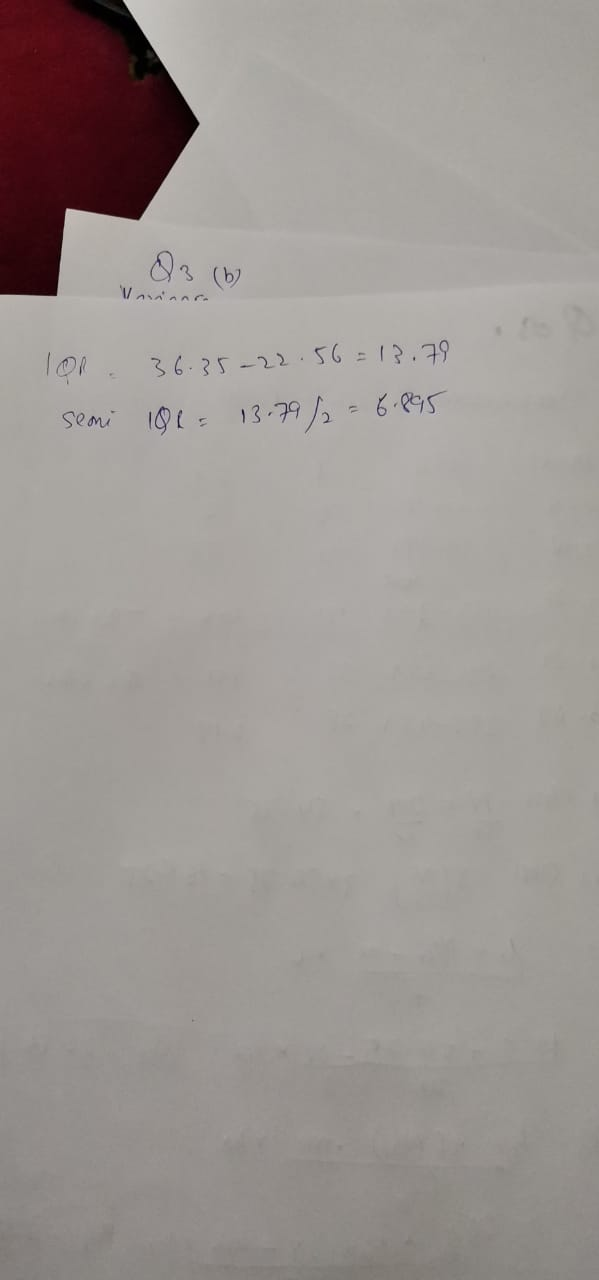 Q3 (b)
Variance
IQR = 36.35 - 22.56 = 13.79
semi IQR = 13.79/2 = 6.895